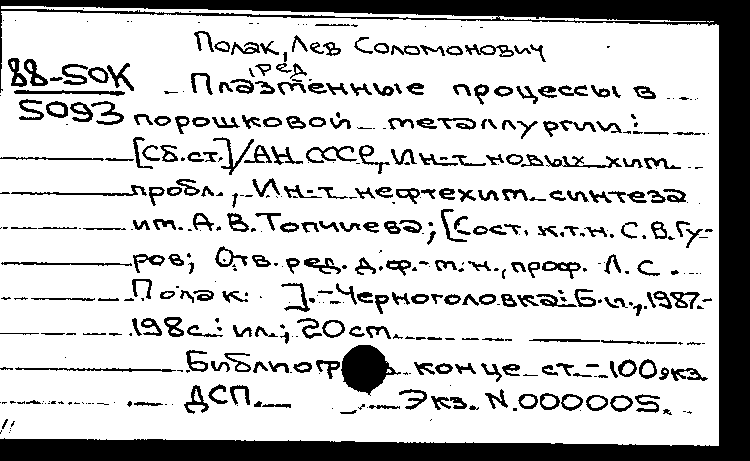 Полак, Лев Соломонович
ред.
88-50К Плазменные процессы в
5093 порошковой металлургии:
[Сб.ст.]/АН СССР, Ин-т новых хим.
пробл., Ин-т нефтехим. синтеза
им. А.В.Топчиева; [Сост. к.т.н. С.В.Гу-
ров; Отв. ред. д.ф.-м.н., проф. Л.С.
Полак. ].-Черноголовка: Б.и., 1987.-
198с.: ил.; 20см.
Библиогр. в конце ст.-100экз.
ДСП. Экз. N.000005.